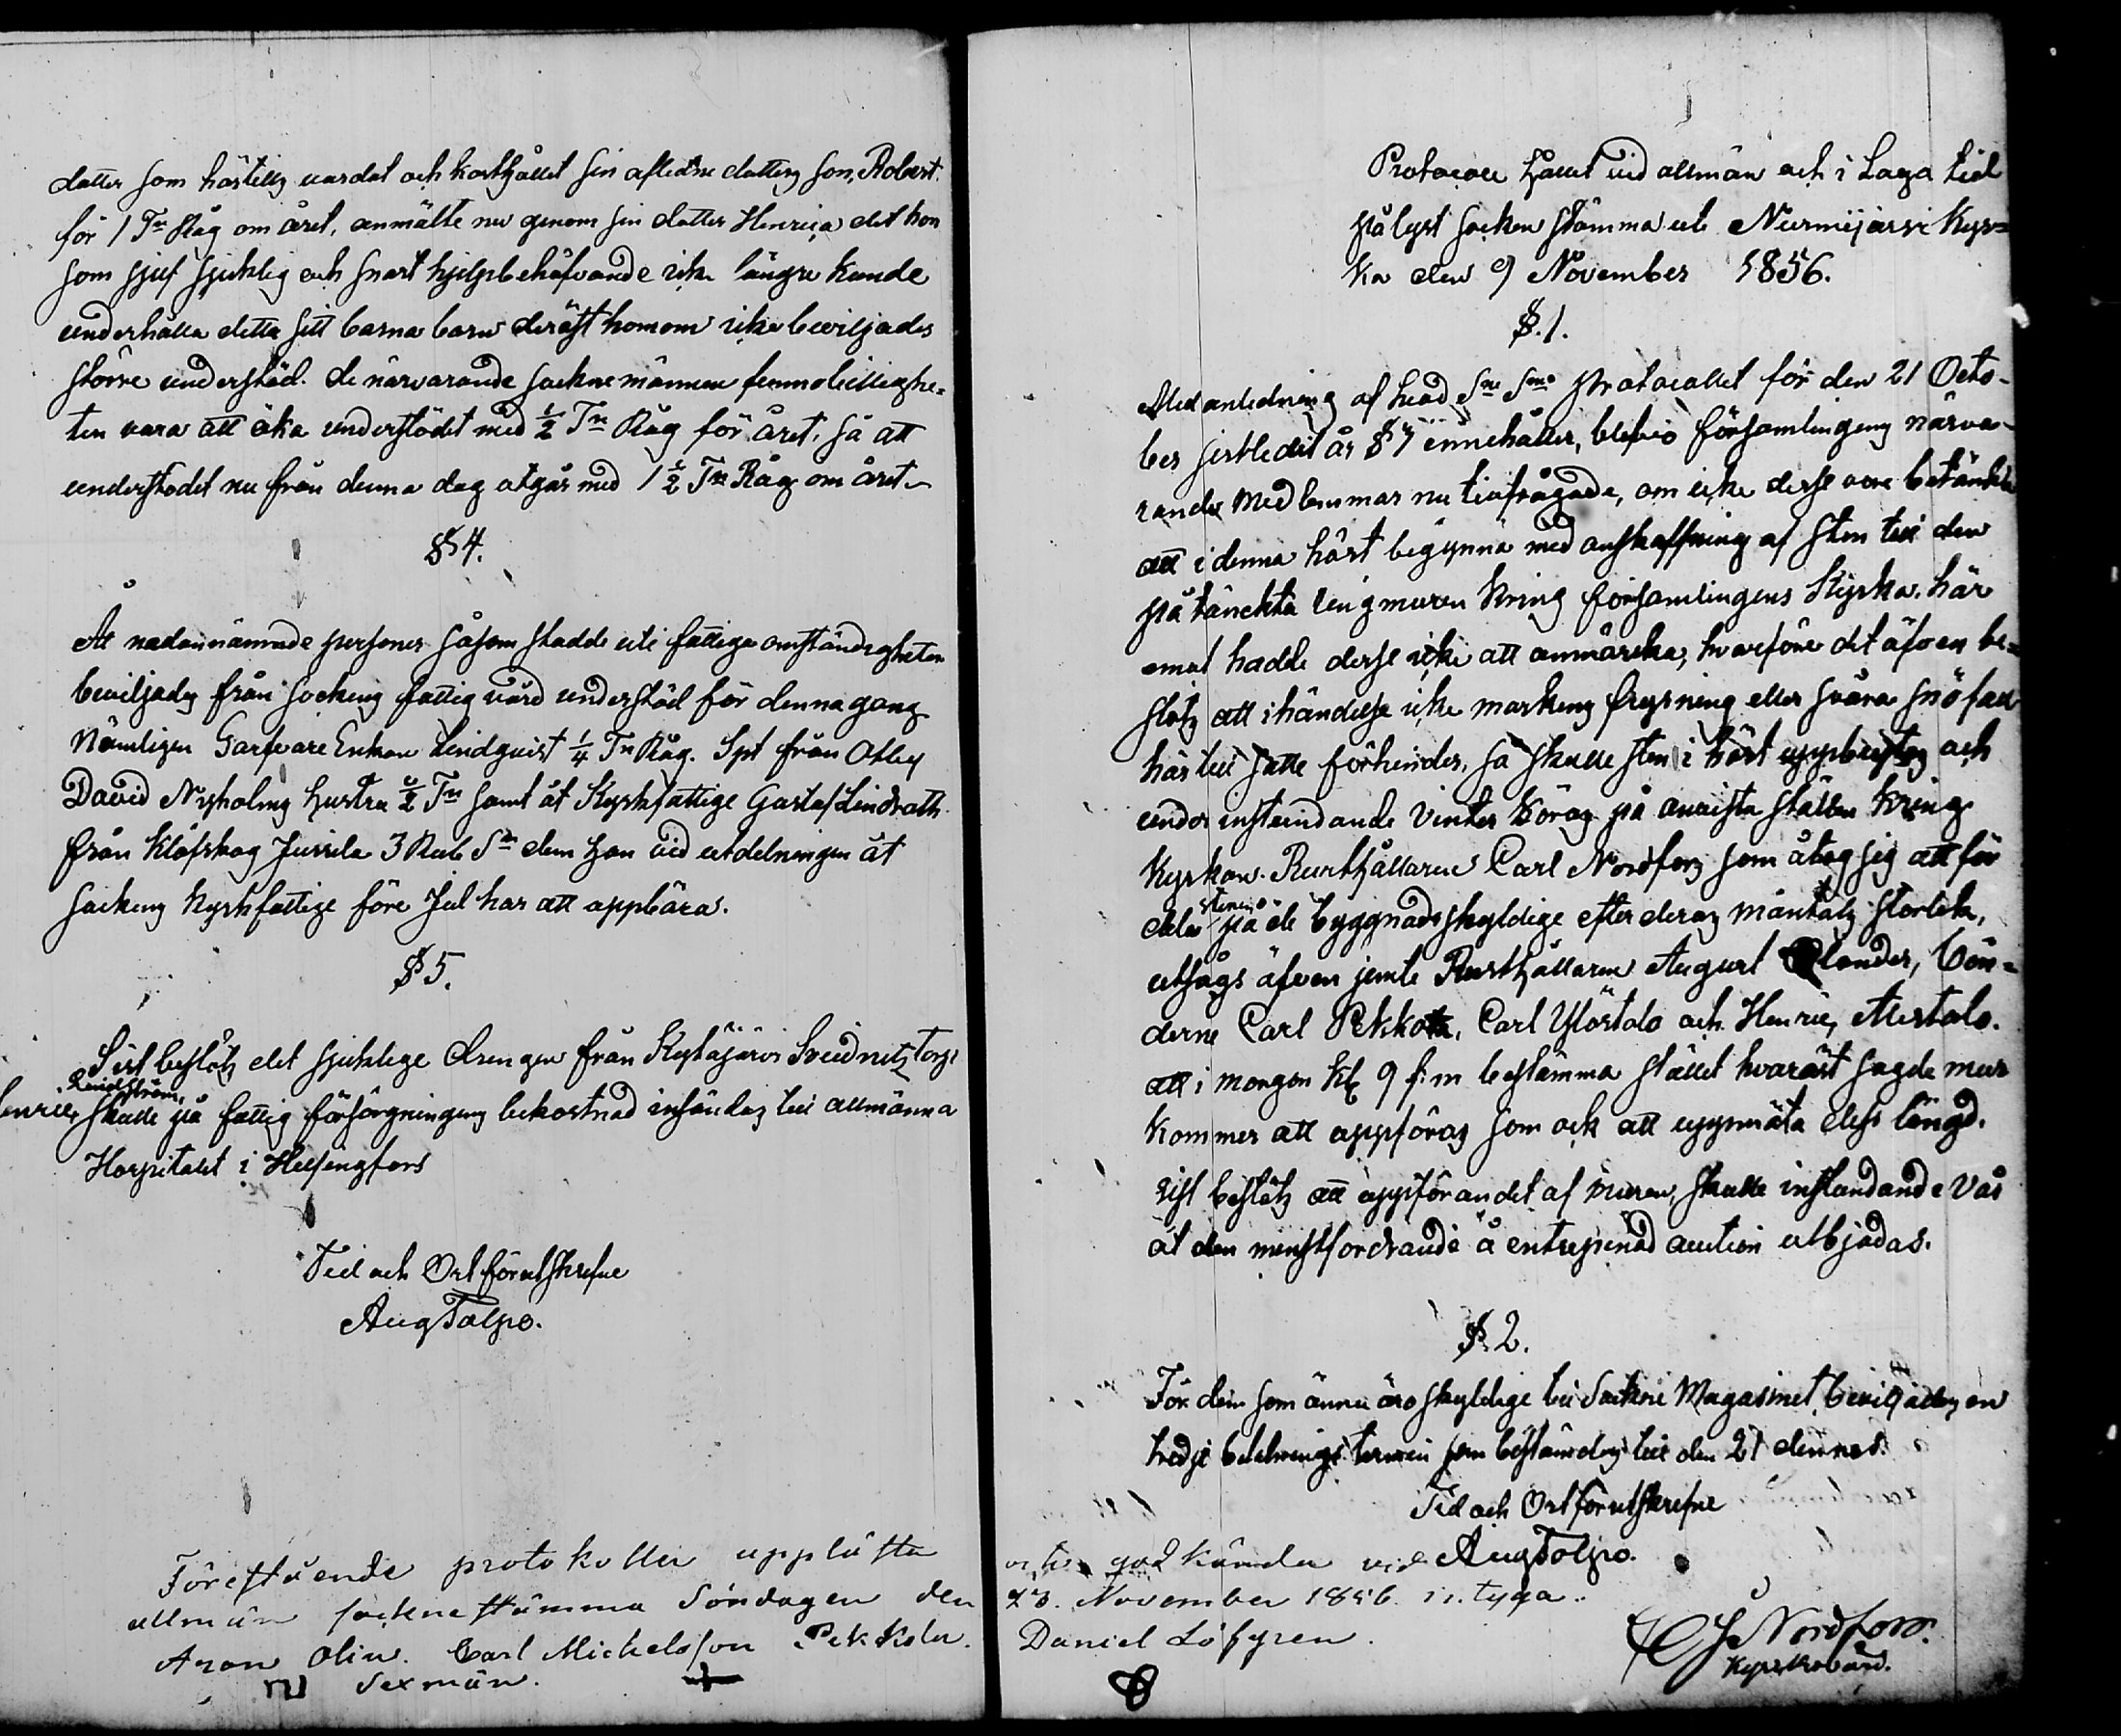 dotter som härtills vårdat och kosthållet sin aflidne dotters son, Robert
för 1 Tn Råg om året, anmälte nu genom sin dotter Henrica det hon
som sjelf sjuklig och snart hjelpbehöfvande icke längre kunde
underhålla detta sitt barna barn derest honom icke beviljades
större understöd. de närvarande sockne männen funno billighe=
ten vara att öka understödet med ½ Tn Råg för året, så att
understödet nu från denna dag utgår med 1½ Tn Råg om året
§ 4.
Åt nedannämnde personer såsom stadde uti fattiga omständigheter
beviljades från sockens fattigvård understöd för denna gang
Nämligen Garfvare Enkan Lindquist ¼ Tn Råg. Spt från
David Nyholms hustru ½ Tn samt åt Kyrkfattige Gustaf Lindroth
från Klöfskog Jussila 3 Rub Sr dem han vid utdelningen åt
sockens kyrkfattige före Jul har att uppbära.
§ 5.
Sist beslöts det sjuklige drengen från Kytäjärvi Torp
Henric Lindström, skulle på fattig försörgningens bekostnad insändas till allmänna
Hospitalet i Helsingfors
Tid och Ort förutskrefne
Aug Tolpo.
Förestående protokoller upplästa
allmän sockne stämma Söndagen den
Aron Olin. Carl Michelsson Pekkola.
Sexmän.
Protocoll hållet vid allmän och i Laga tid
pålyst socken stämma uti Nurmijärvi Kyr=
ka den 9 November 1856.
§. 1.
Med anledning af hvad Sne Sms protocollet för den 21 Octo-
ber sistledit år § 7 innehåller, blefvo församlingens närva-
rande Medlemmar nu tillfrågade, om icke desse vore betänkte
att i denna höst begynna med anskaffning af sten till den
påtänckta ringmuren kring församlingens Kyrka. här
emot hadde desse icke att anmärcka, hvarföre det äfven be=
slöts att ihändelse icke markens frysning eller svåra snöfall
här till satte förhinder, så skulle sten i höst uppbrytas och
under instundande Vinter köras på anvista ställen kring
Kyrkan. Rusthållaren Carl Nordfors som åtog sig att för
dela stenen på de byggnadsskyldige efter deras mantals storlek,
utsågs äfven jemte Rusthållaren August Olander, bön=
derne Carl Pekkola, Carl Ylöstalo och Henric Alestalo.
att i morgon Kl 9 f:m bestämma stället hvaräst sagde mur
kommer att uppföras som ock att uppmäta dess längd.
sist beslöts att uppförandet af muren, skulle instundande Vår
åt den minstfordrande å entreprenad auction utbjudas.
§. 2.
För dem som ännu äro skyldige till Sockne Magasinet, beviljades en
tredje betalnings termin som bestämdes till den 21 dennes.
Tid och Ort förutskrefne
Aug Tolpo.
och godkända vid
23. November 1856 intyga.
Daniel Löfgren.
Nordfors.
Kyrkovärd.